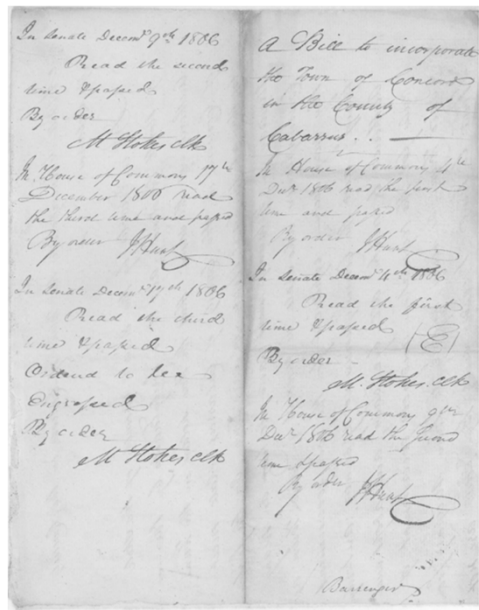 In Senate Decemr. 9th 1806
Read the second
time & passed
By order
M Stokes Clk
In House of Commons 17th
December 1806 read
the third time and passed
By order J Hunt
In Senate Decemr. 17th 1806
Read the third
time & passed
Ordered to be
Engrossed
By order
M Stokes Clk
A Bill to incorporate
the Town of Concord
in the County of
Cabarrus . . —
In House of Commons 4th
Decr. 1806 read the first
time and passed
By order J Hunt
In Senate Decemr. 4th 1806
Read the first
time & passed
(E)
By order
M. Stokes Clk
In House of Commons 9th
Decr. 1806 read the second
time & passed
By order J Hunt
Barringer